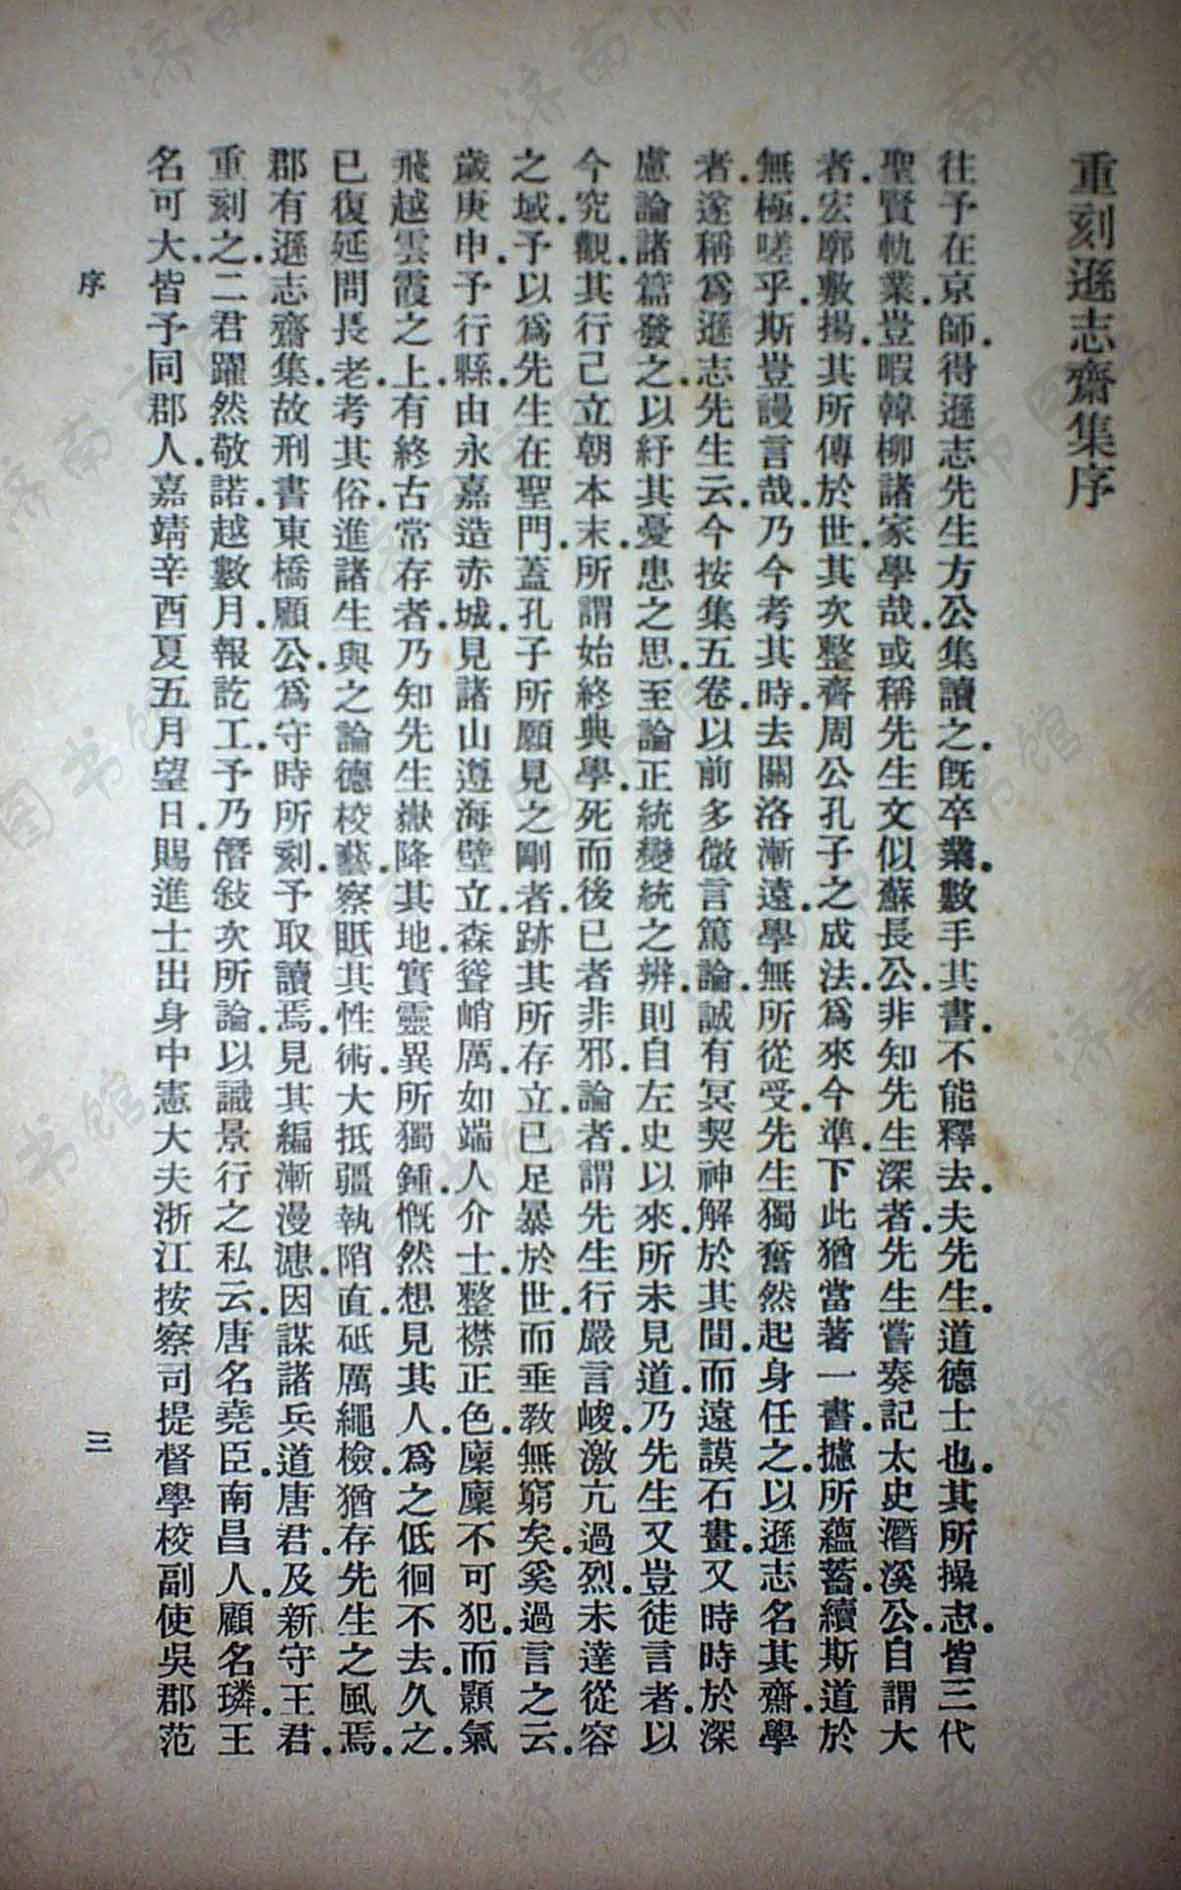 重刻遜志齋集序
往予在京師．得遜志先生方公集讀之．既卒業．數手其書．不能釋去．夫先生．道德士也．其所操志．皆三代
聖賢軌業．豈暇韓柳諸家學哉．或稱先生文似蘇長公．非知先生深者．先生嘗奏記太史潛溪公．自謂大
者．宏廓敷揚．其所傳於世．其次整齊周公孔子之成法．爲來今準．下此猶當著一書．攄所蘊蓄．續斯道於
無極．嗟乎．斯豈謾言哉．乃今考其時．去關洛漸遠．學無所從受．先生獨奮然起身任之．以遜志名其齋．學
者．遂稱爲遜志先生云．今按集五卷．以前多微言篤論．誠有冥契神解於其間．而遠謨石畫．又時時於深
慮論諸篇發之．以紓其憂患之思．至論正統變統之辨．則自左史以來．所未見道．乃先生又豈徒言者．以
今究觀．其行己立朝本末．所謂始終典學．死而後已者非邪．論者．謂先生行嚴言峻．激亢過烈．未達從容
之域．予以爲先生在聖門．蓋孔子所願見之剛者．跡其所存立．已足暴於世．而垂教無窮矣．奚過言之云．
歲庚申．予行縣．由永嘉造赤城．見諸山遵海壁立．森聳峭厲．如端人介士．整襟正色．廩廩不可犯．而顥氣
飛越雲霞之上．有終古常存者．乃知先生嶽降其地．實靈異所獨鍾．慨然想見其人．爲之低徊不去．久之．
已復延問長老．考其俗．進諸生．與之論德校藝．察眂其性術．大抵疆執陗直．砥厲繩檢．猶存先生之風焉．
郡有遜志齋集．故刑書東橋顧公．爲守時所刻．予取讀焉．見其編漸漫漶．因謀諸兵道唐君．及新守王君．
重刻之．二君躍然敬諾．越數月．報訖工．予乃僭敍次所論．以識景行之私云．唐名堯臣．南昌人．顧名璘．王
名可大．皆予同郡人．嘉靖辛酉夏五月望日．賜進士出身中憲大夫浙江按察司提督學校副使吳郡范
序
三